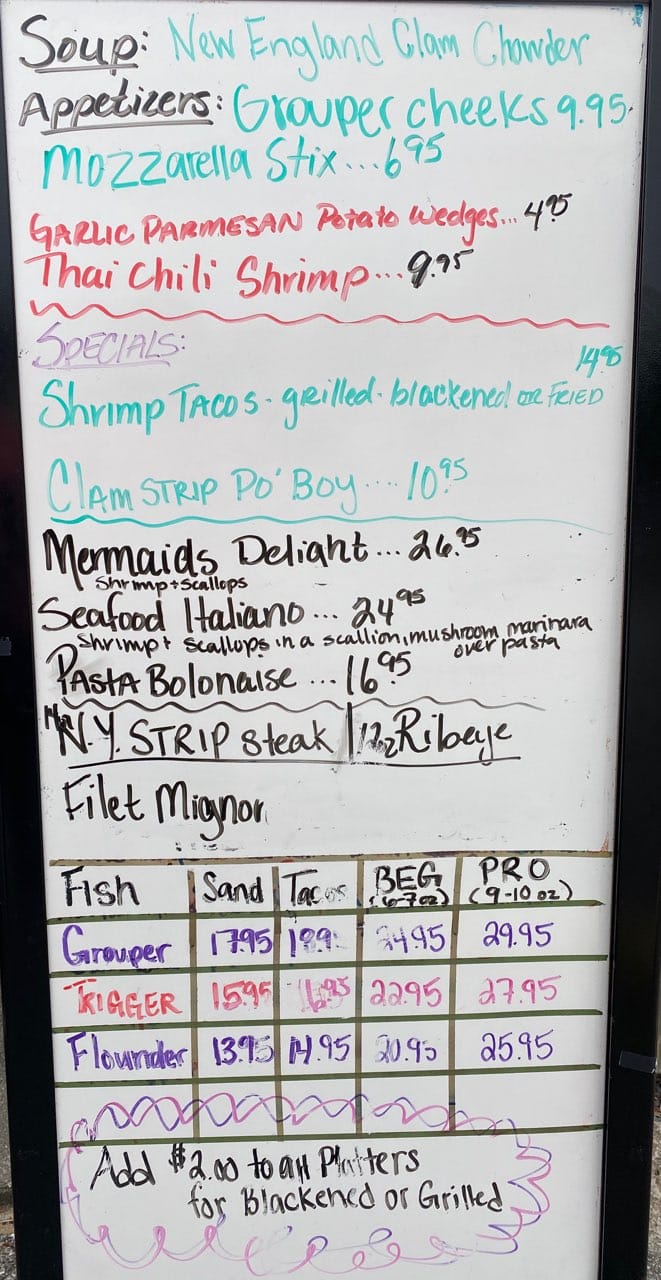 Soup: New England Clam Chowder
Appetizers: Grouper cheeks 9.95
Mozzarella Stix... 6.95
GARLIC PARMESAN Potato Wedges... 4.95
Thai Chili Shrimp... 9.95
SPECIALS:
14.95
Shrimp TACOS - grilled - blackened OR FRIED
Clam STRIP PO' BOY.... 10.95
Mermaids Delight... 26.95
Shrimp + Scallops
Seafood Italiano... 24.95
Shrimp + Scallops in a scallion, mushroom marinara
over pasta
PASTA Bolonaise... 16.95
N.Y. STRIP Steak | Ribeye
Filet Mignon
Fish Sand Tacos BEG PRO
(6-7oz) (9-10 oz)
Grouper 17.95 24.95 29.95
TRIGGER 15.95 16.95 22.95 27.95
Flounder 13.95 14.95 20.95 25.95
Add $2.00 to all Platters
for Blackened or Grilled